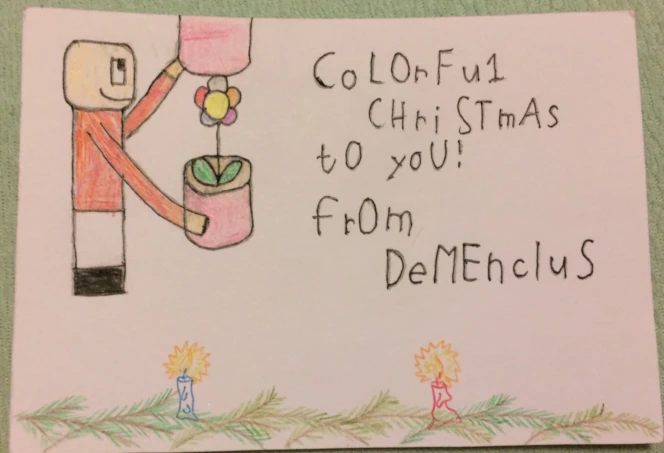 CoLOrFu1
CHriSTmAs
tO yoU!
frOm
DeMEncluS